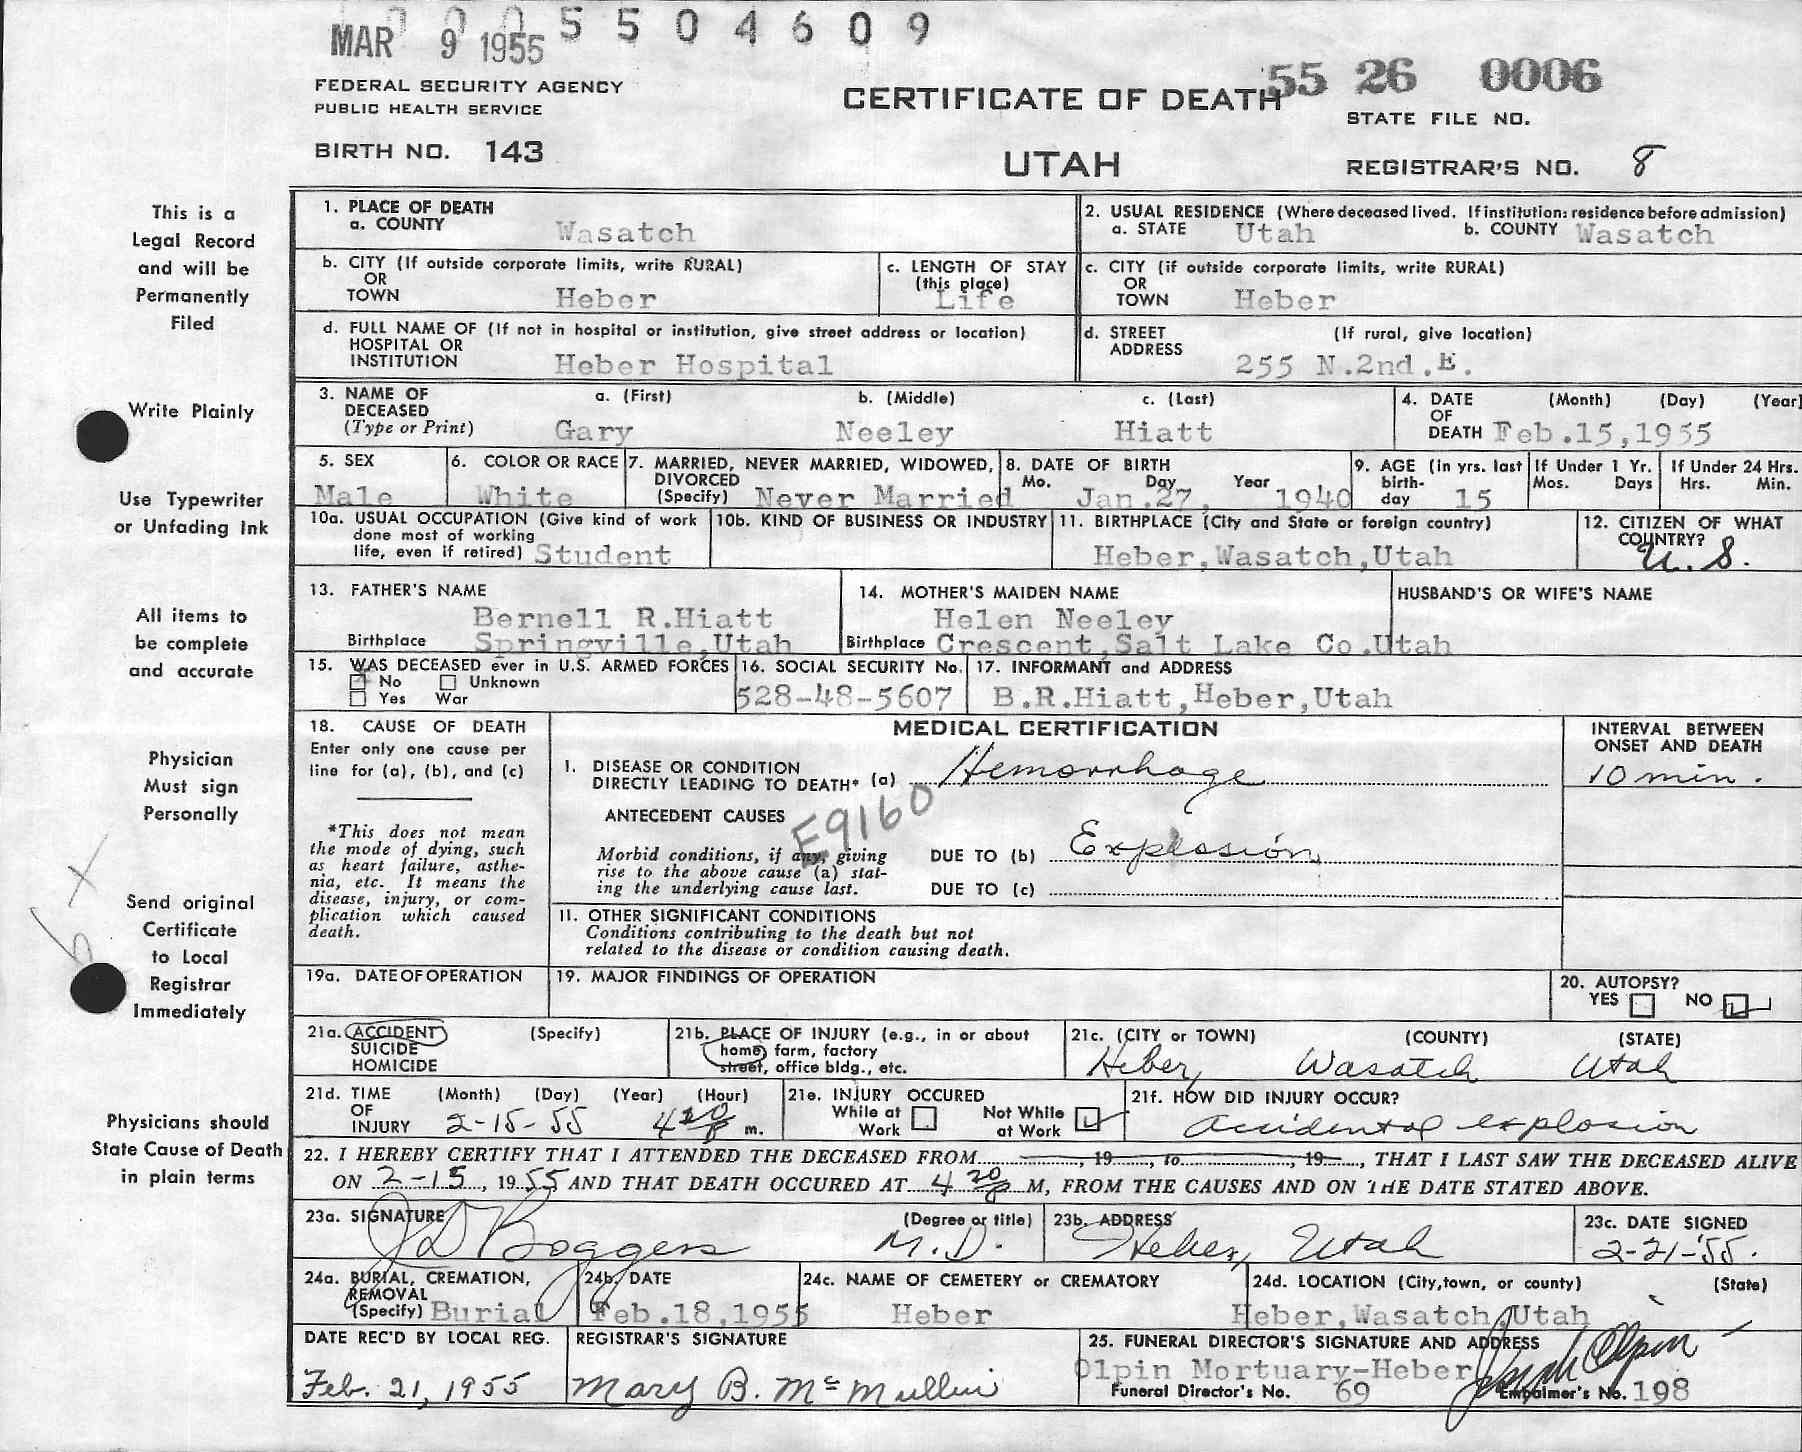 0005504609
MAR 9 1955
FEDERAL SECURITY AGENCY
PUBLIC HEALTH SERVICE
BIRTH NO. 143
CERTIFICATE OF DEATH
UTAH
55 26 0006
STATE FILE NO.
REGISTRAR'S NO. 8
This is a
Legal Record
and will be
Permanently
Filed
Write Plainly
Use Typewriter
or Unfading Ink
All items to
be complete
and accurate
Physician
Must sign
Personally
Send original
Certificate
to Local
Registrar
Immediately
Physicians should
State Cause of Death
in plain terms
1. PLACE OF DEATH
a. COUNTY Wasatch
2. USUAL RESIDENCE (Where deceased lived. If institution: residence before admission)
a. STATE Utah b. COUNTY Wasatch
b. CITY (If outside corporate limits, write RURAL)
OR
TOWN Heber
c. LENGTH OF STAY
(this place)
Life
c. CITY (if outside corporate limits, write RURAL)
OR
TOWN Heber
d. FULL NAME OF (If not in hospital or institution, give street address or location)
HOSPITAL OR
INSTITUTION Heber Hospital
d. STREET (If rural, give location)
ADDRESS
255 N.2nd.E.
3. NAME OF a. (First) b. (Middle) c. (Last)
DECEASED
(Type or Print) Gary Neeley Hiatt
4. DATE (Month) (Day) (Year)
OF
DEATH Feb.15,1955
5. SEX
Male
6. COLOR OR RACE
White
7. MARRIED, NEVER MARRIED, WIDOWED,
DIVORCED
(Specify) Never Married
8. DATE OF BIRTH
Mo. Day Year
Jan.27, 1940
9. AGE (in yrs. last
birth-
day 15
If Under 1 Yr.
Mos. Days
If Under 24 Hrs.
Hrs. Min.
10a. USUAL OCCUPATION (Give kind of work
done most of working
life, even if retired) Student
10b. KIND OF BUSINESS OR INDUSTRY
11. BIRTHPLACE (City and State or foreign country)
Heber,Wasatch,Utah
12. CITIZEN OF WHAT
COUNTRY?
U. S.
13. FATHER'S NAME
Bernell R.Hiatt
Birthplace Springville,Utah
14. MOTHER'S MAIDEN NAME
Helen Neeley
Birthplace Crescent,Salt Lake Co.Utah
HUSBAND'S OR WIFE'S NAME
15. WAS DECEASED ever in U.S. ARMED FORCES
No Unknown
Yes War
16. SOCIAL SECURITY No.
528-48-5607
17. INFORMANT and ADDRESS
B.R.Hiatt,Heber,Utah
18. CAUSE OF DEATH
Enter only one cause per
line for (a), (b), and (c)
*This does not mean
the mode of dying, such
as heart failure, asthe-
nia, etc. It means the
disease, injury, or com-
plication which caused
death.
MEDICAL CERTIFICATION
1. DISEASE OR CONDITION
DIRECTLY LEADING TO DEATH* (a) Hemorrhage
ANTECEDENT CAUSES
E9160
Morbid conditions, if any, giving
rise to the above cause (a) stat-
ing the underlying cause last.
DUE TO (b) Explosion
DUE TO (c)
11. OTHER SIGNIFICANT CONDITIONS
Conditions contributing to the death but not
related to the disease or condition causing death.
INTERVAL BETWEEN
ONSET AND DEATH
10 min.
19a. DATE OF OPERATION
19. MAJOR FINDINGS OF OPERATION
20. AUTOPSY?
YES NO
21a. ACCIDENT (Specify)
SUICIDE
HOMICIDE
21b. PLACE OF INJURY (e.g., in or about
home, farm, factory
street, office bldg., etc.
21c. (CITY or TOWN) (COUNTY) (STATE)
Heber, Wasatch Utah
21d. TIME (Month) (Day) (Year) (Hour)
OF
INJURY 2-15-55 4 20 P m.
21e. INJURY OCCURED
While at Work Not While at Work
21f. HOW DID INJURY OCCUR?
accidental explosion
22. I HEREBY CERTIFY THAT I ATTENDED THE DECEASED FROM , 19 , to , 19 , THAT I LAST SAW THE DECEASED ALIVE
ON 2-15, 1955 AND THAT DEATH OCCURED AT 4 20 P M, FROM THE CAUSES AND ON THE DATE STATED ABOVE.
23a. SIGNATURE (Degree or title)
Boggess M.D.
23b. ADDRESS
Heber, Utah
23c. DATE SIGNED
2-21-55.
24a. BURIAL, CREMATION,
REMOVAL
(Specify) Burial
24b. DATE
Feb.18,1955
24c. NAME OF CEMETERY or CREMATORY
Heber
24d. LOCATION (City,town, or county) (State)
Heber,Wasatch,Utah
DATE REC'D BY LOCAL REG.
Feb. 21, 1955
REGISTRAR'S SIGNATURE
Mary B. McMullin
25. FUNERAL DIRECTOR'S SIGNATURE AND ADDRESS
Olpin Mortuary-Heber Olpin
Funeral Director's No. 69 Embalmer's No. 198